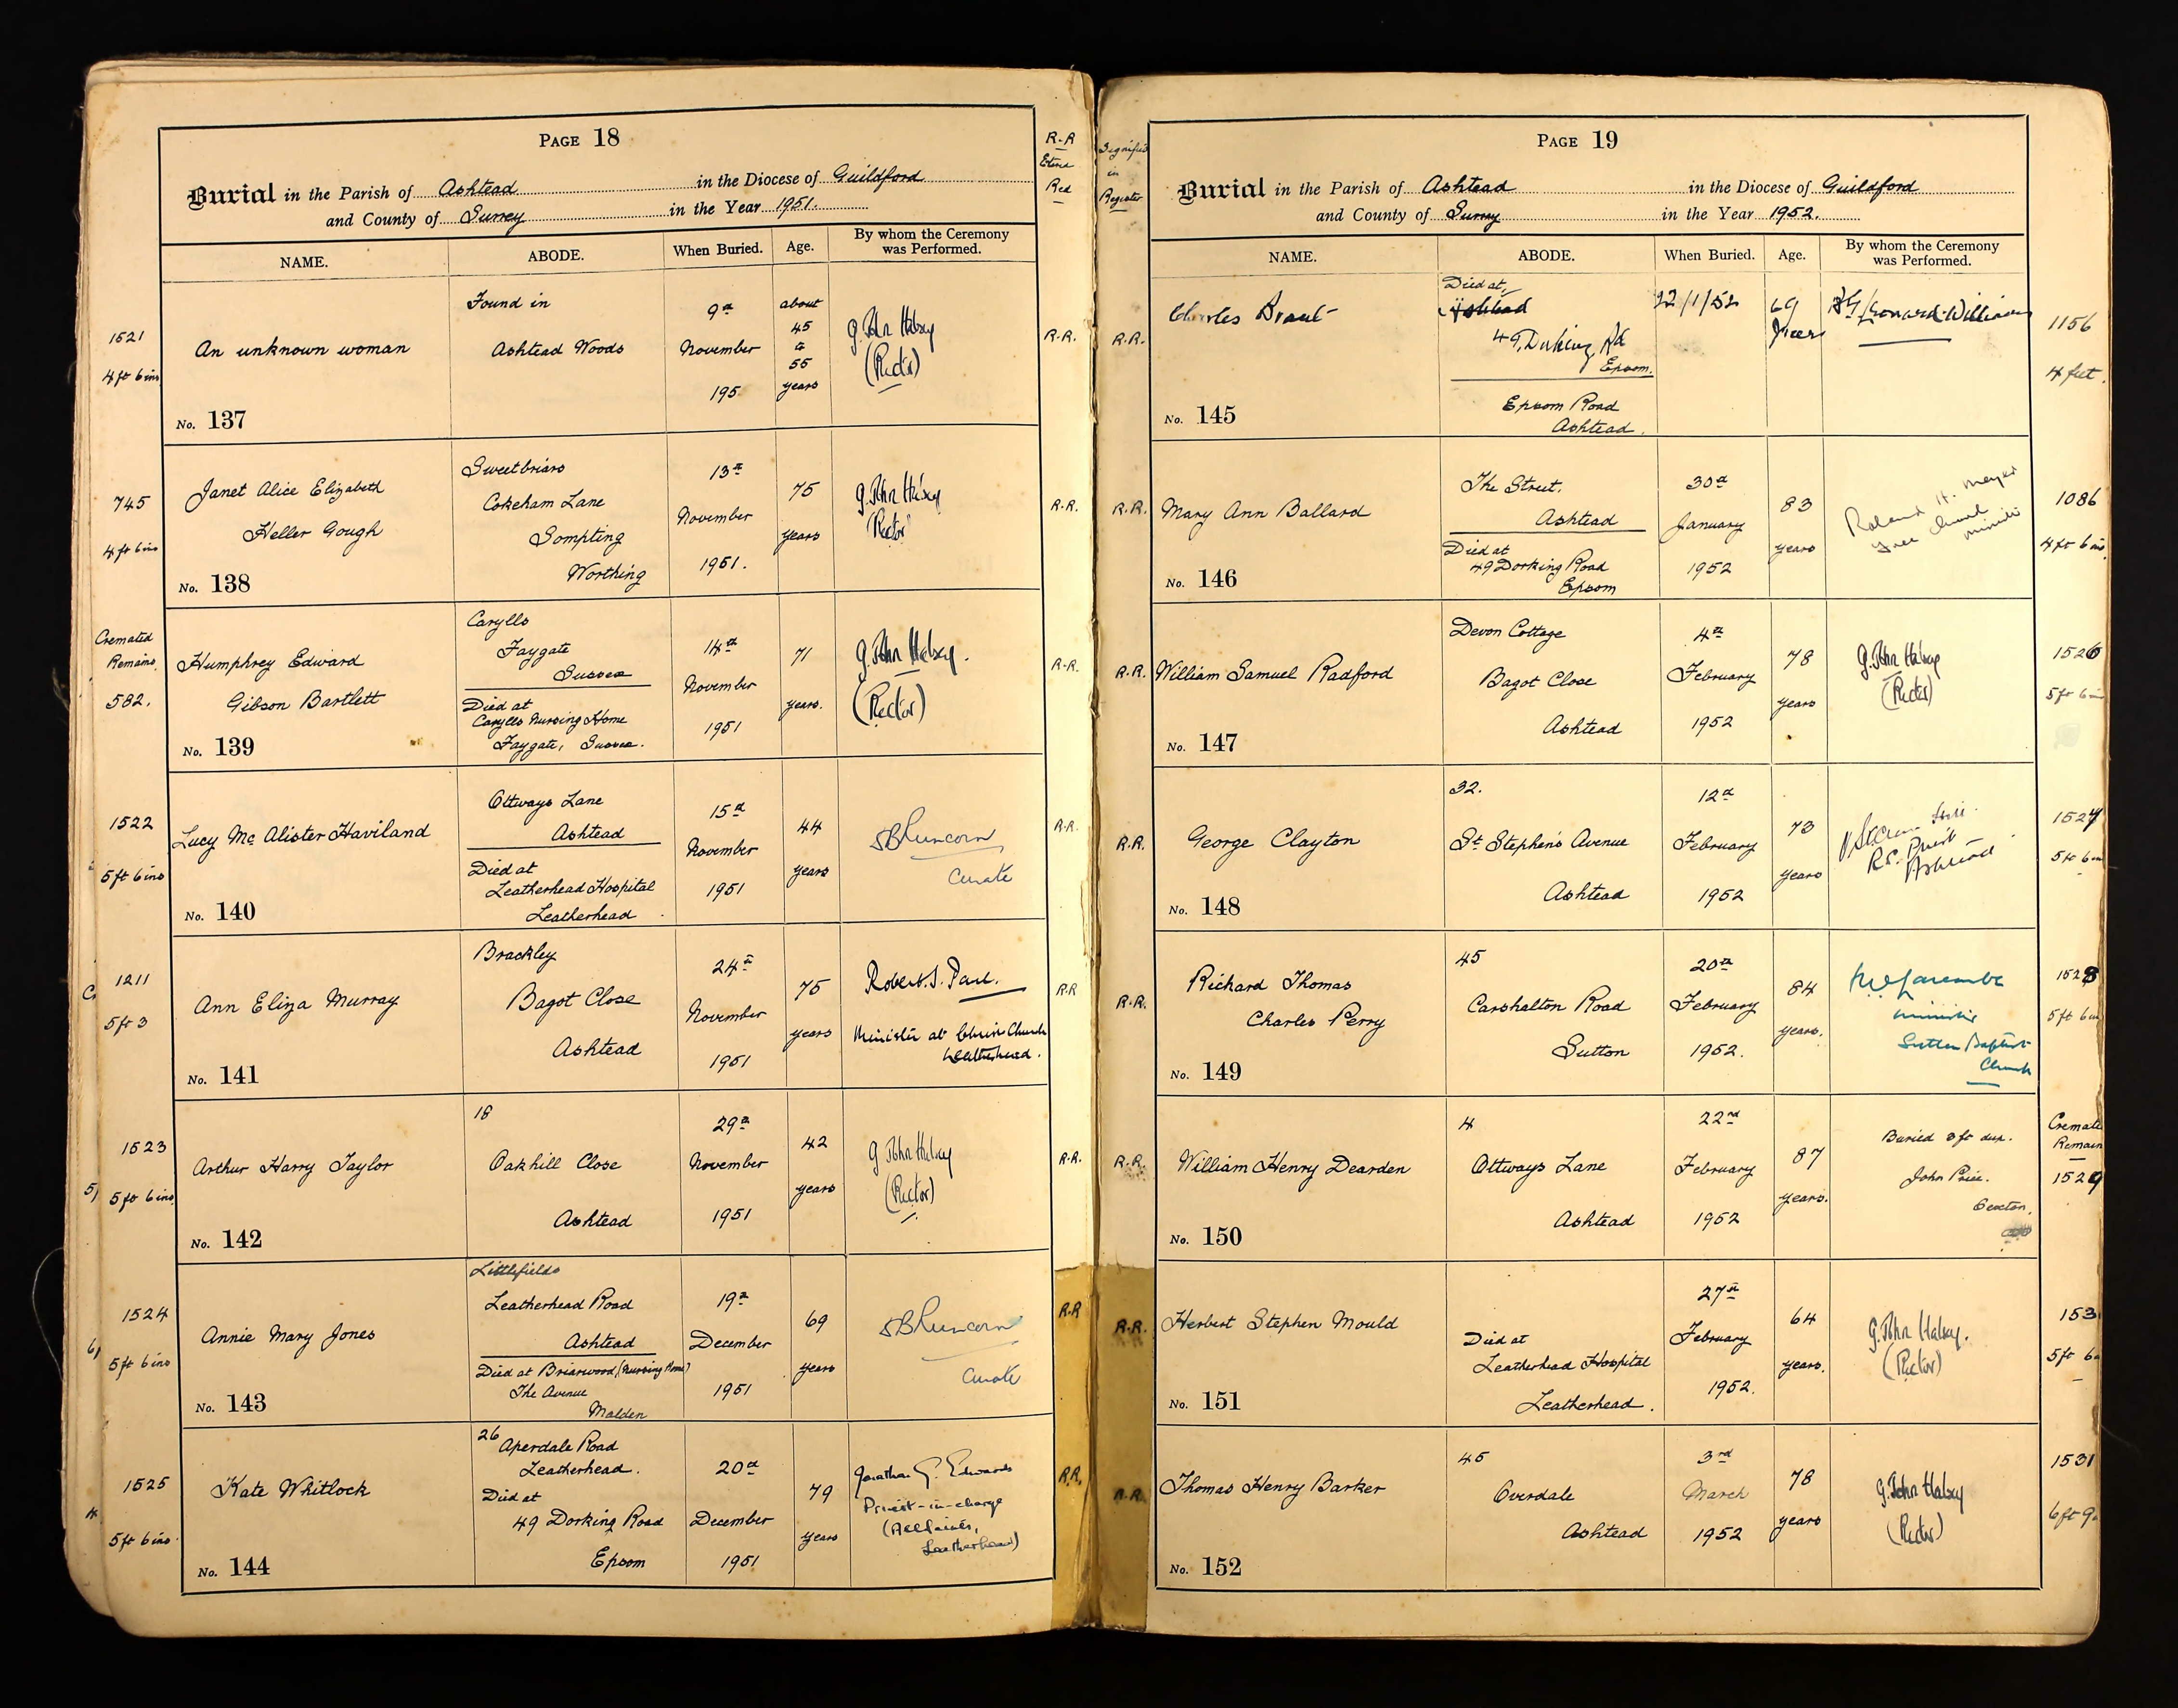 PAGE 18
Burial in the Parish of Ashtead in the Diocese of Guildford
and County of Surrey in the Year 1951.
R-R
Red
NAME.
ABODE.
When Buried.
Age.
By whom the Ceremony
was Performed.
1521
4 ft 6 ins
An unknown woman
No. 137
Found in
Ashtead Woods
9th
November
195
about
45
to
55
years
G. John Halsey
(Rector)
R.R.
745
4 ft 6 ins
Janet Alice Elizabeth
Heller Gough
No. 138
Sweetbriars
Cokeham Lane
Sompting
Worthing
13th
November
1951.
75
years
G. John Halsey
Rector
R.R.
Cremated
Remains
582.
Humphrey Edward
Gibson Bartlett
No. 139
Carylls
Faygate
Sussex
Died at
Carylls Nursing Home
Faygate, Sussex.
14th
November
1951
71
years.
G. John Halsey.
(Rector)
R.R.
1522
5 ft 6 ins
Lucy Mc Alister Haviland
No. 140
Ottways Lane
Ashtead
Died at
Leatherhead Hospital
Leatherhead
15th
November
1951
44
years
S B Runcorn
Curate
R.R.
1211
5 ft 3
Ann Eliza Murray
No. 141
Brackley
Bagot Close
Ashtead
24th
November
1951
75
years
Robert. S. Paul.
Minister at Christ Church
Leatherhead.
R.R
1523
5 ft 6 ins
Arthur Harry Taylor
No. 142
18
Oakhill Close
Ashtead
29th
November
1951
42
years
G John Halsey
(Rector)
R.R.
1524
5 ft 6 ins
Annie Mary Jones
No. 143
Littlefields
Leatherhead Road
Ashtead
Died at Briarwood (Nursing Home)
The Avenue
Malden
19th
December
1951
69
years
S B Runcorn
Curate
R.R
1525
5 ft 6 ins
Kate Whitlock
No. 144
26
Aperdale Road
Leatherhead.
Died at
49 Dorking Road
Epsom
20th
December
1951
79
years
Jonathan G. Edwards
Priest-in-charge
(All Saints,
Leatherhead)
R.R.
in
Register
PAGE 19
Burial in the Parish of Ashtead in the Diocese of Guildford
and County of Surrey in the Year 1952.
NAME.
ABODE.
When Buried.
Age.
By whom the Ceremony
was Performed.
R.R.
Charles
No. 145
Died at
Ashtead
49, Dorking Rd
Epsom.
Epsom Road
Ashtead.
22/1/52
69
years
Williams
1156
4 feet.
R.R.
Mary Ann Ballard
No. 146
The Street.
Ashtead
Died at
49 Dorking Road
Epsom
30th
January
1952
83
years
Roland H. Meyer
Free Church
minister
1086
4 ft 6 ins.
R.R.
William Samuel Radford
No. 147
Devon Cottage
Bagot Close
Ashtead
4th
February
1952
78
years
G. John Halsey
(Rector)
1526
5 ft 6 ins
R.R.
George Clayton
No. 148
32.
St Stephens Avenue
Ashtead
12th
February
1952
73
years
R.C. Priest
Ashtead
1527
5 ft 6 in
R.R.
Richard Thomas
Charles Perry
No. 149
45
Carshalton Road
Sutton
20th
February
1952.
84
years.
minister
Sutton Baptist
Church
1528
5 ft 6 in
R.R.
William Henry Dearden
No. 150
4
Ottways Lane
Ashtead
22nd
February
1952
87
years.
Buried 3 ft deep.
John Price.
Sexton.
Cremate
Remain
1529
R.R.
Herbert Stephen Mould
No. 151
Died at
Leatherhead Hospital
Leatherhead.
27th
February
1952.
64
years.
G. John Halsey.
(Rector)
153
5 ft 6
R.R.
Thomas Henry Barker
No. 152
45
Overdale
Ashtead
3rd
March
1952
78
years
G. John Halsey
(Rector)
1531
6 ft 9